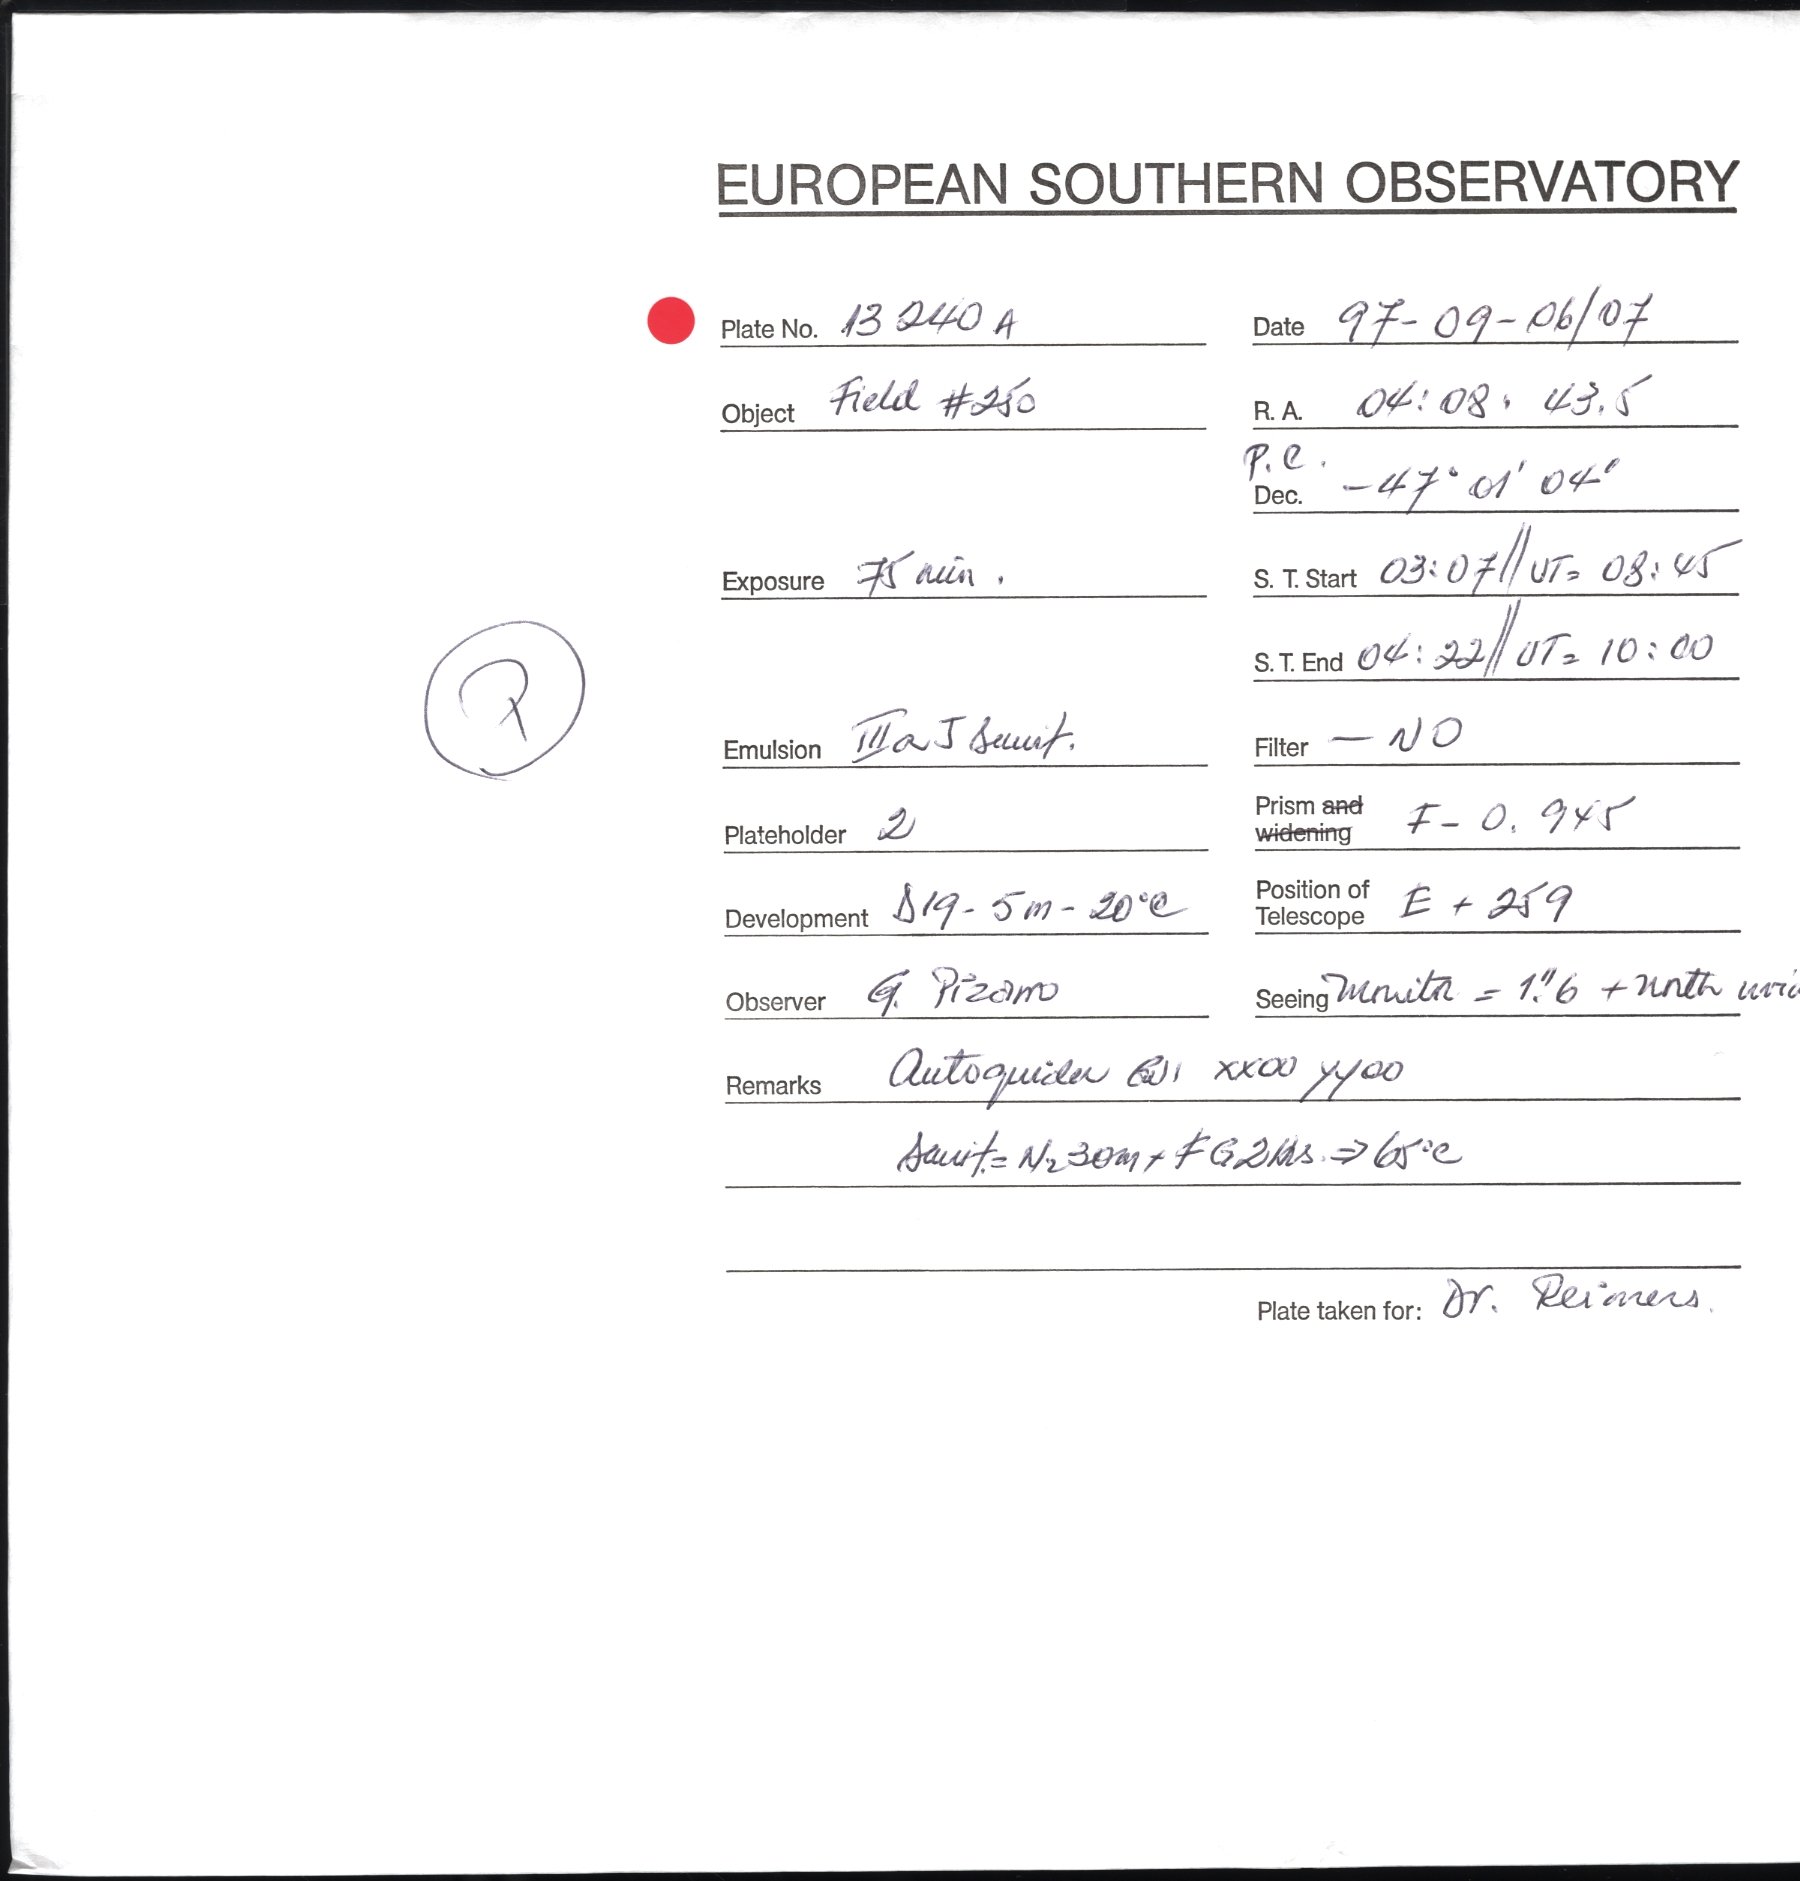 EUROPEAN SOUTHERN OBSERVATORY
Plate No. 13240 A
Date 97-09-06/07
Object Field #250
R. A. 04:08:43.5
P.C.
Dec. -47° 01' 04"
Exposure 75 min.
S. T. Start 03:07//UT= 08:45
S. T. End 04:22//UT= 10:00
Emulsion IIIaJ Sensit.
Filter - NO
Plateholder 2
Prism and widening F- 0.945
Development D19- 5m- 20°C
Position of Telescope E + 259
Observer G. Pizarro
Seeing Monitor = 1."6 + North
Remarks Autoguider xx00 yy00
Sensit.= N2 30m + FG 2hrs. ⇒ 65°C
Plate taken for: Dr. Reimers.